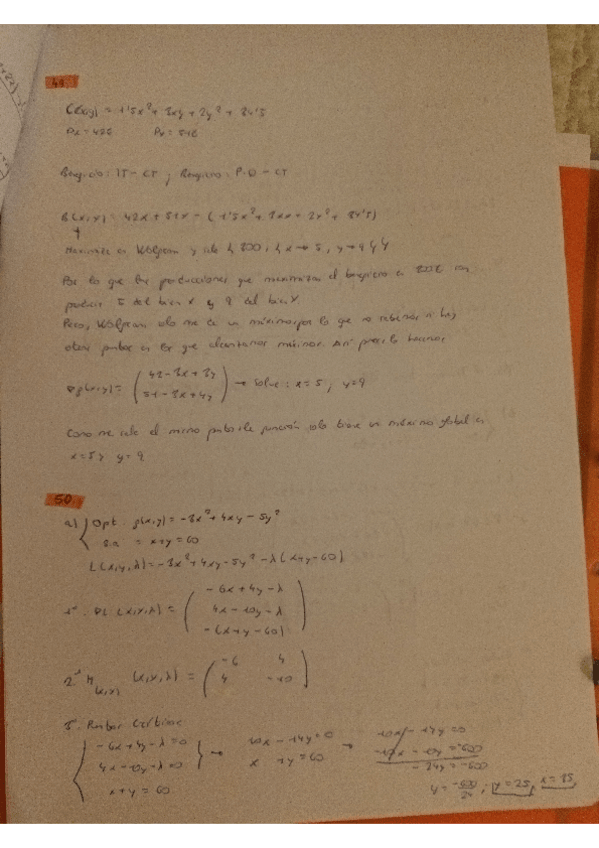 49.
C(x,y) = 1'5x² + 3xy + 2y² + 34'5
Px = 42€ Py = 51€
Beneficio: IT - CT ; Beneficio: P·Q - CT
B(x,y) = 42x + 51y - (1'5x² + 3xy + 2y² + 34'5)
Maximizo en Wolfram y sale 300, x → 5, y → 9
Por lo que las producciones que maximizan el beneficio en 300€ son
producir 5 del bien x y 9 del bien Y.
Pero, Wolfram solo me da un máximo por lo que no sabemos si hay
otros puntos en los que alcanzamos máximos. Así pues lo hacemos
∇B(x,y) = ( 42 - 3x + 3y
51 - 3x + 4y ) → Solve: x = 5, y = 9
Como me sale el mismo punto la función solo tiene un máximo global en
x = 5 y y = 9
50.
a) { Opt. f(x,y) = -3x² + 4xy - 5y²
s.a = x + y = 60
L(x,y,λ) = -3x² + 4xy - 5y² - λ(x + y - 60)
1º. ∇L (x,y,λ) = ( -6x + 4y - λ
4x - 10y - λ
-(x + y - 60) )
2º H(x,y) (x,y,λ) = ( -6 4
4 -10 )
3. Puntos Críticos
{ -6x + 4y - λ = 0
4x - 10y - λ = 0
x + y = 60 } →
10x - 14y = 0
x + y = 60 →
10x - 14y = 0
-10x - 10y = -600
-24y = -600
y = -600/24 ; y = 25, x = 35